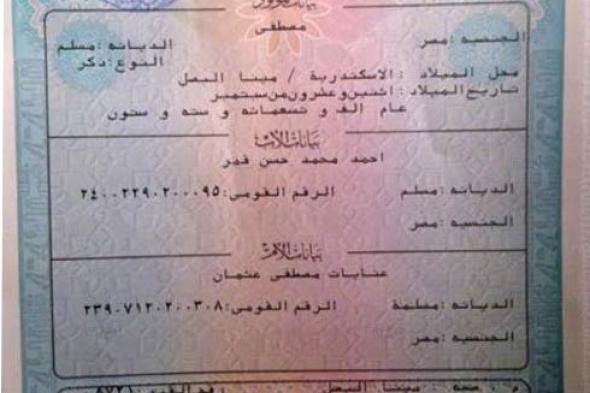 بيانات المولود
مصطفى
الجنسيه : مصر الديانه : مسلم
النوع : ذكر
محل الميلاد : الاسكندرية / مينا البصل
تاريخ الميلاد : اثنين و عشرون من سبتمبر
عام الف و تسعمائه و سته و ستون
بيانات الأب
احمد محمد حسن قمر
الديانه : مسلم الرقم القومى : ٢٤٠٠٢٢٩٠٢٠٠٠٩٥
الجنسيه : مصر
بيانات الأم
عنايات مصطفى عثمان
الديانه : مسلمة الرقم القومى : ٢٣٩٠٧١٢٠٢٠٠٣٠٨
الجنسيه : مصر